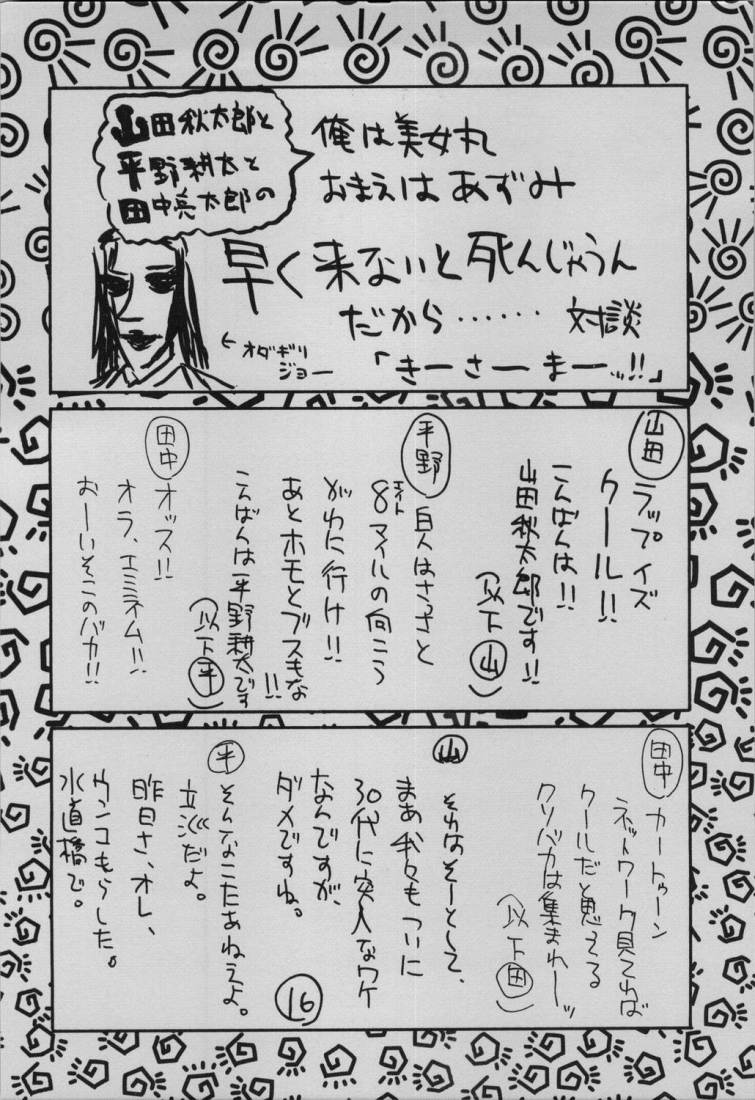 山田秋太郎と
平野耕太と
田中亮太郎の
俺は美女丸
おまえはあずみ
早く来ないと死んじゃうん
だから…… 対談
「きーさーまーッ!!」
←オダギリ
ジョー
山田
ラップイズ
クール!!
こんばんは!!
山田秋太郎です!!
(以下山)
平野
白人はさっさと
8マイルの向こう
エイト
がわに行け!!
あとホモとブスもな!!
こんばんは平野耕太です
(以下平)
田中
オッス!!
オラ、エミネム!!
おーいそこのバカ!!
田中
カートゥーン
ネットワーク見てれば
クールだと思える
クソバカは集まれーッ
(以下田)
山
それはそーとして、
まあ我々もついに
30代に突入なワケ
なんですが、
ダメですね。
平
そんなこたあねえよ。
立派だよ。
昨日さ、オレ、
ウンコもらした。
水道橋で。
16